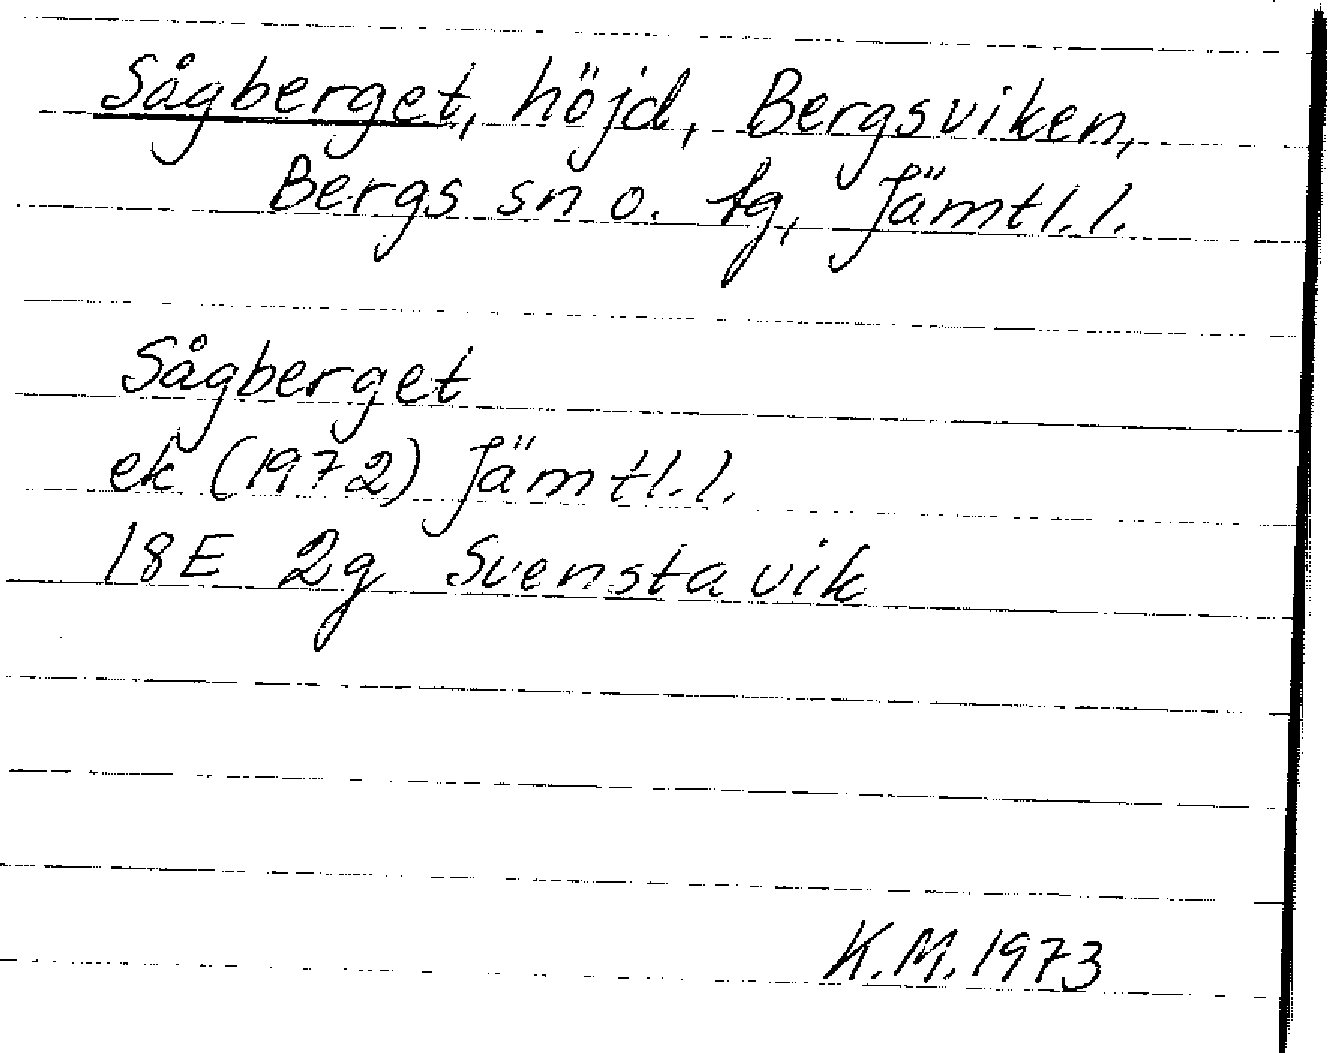 Sågberget, höjd, Bergsviken,
Bergs sn o. tg, Jämtl.l.
Sågberget
ek (1972) Jämtl.l.
18E 2g Svenstavik
K.M. 1973